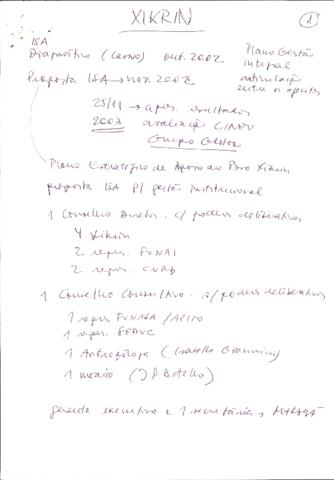 XIKRIN
1
ISA
Diagnóstico out. 2002
Plano Gestão
integral
articulação
entre os agentes
Proposta ISA → nov. 2002
25/11 → apres. resultados
2003 avaliação
Grupo Gestor
Plano Estratégico de Apoio ao Povo Xikrin
proposta ISA p/ gestão institucional
1 Conselho Diretor c/ poderes deliberativos
4 Xikrin
2 repres. FUNAI
2 repres. CVRD
1 Conselho Consultivo s/ poderes deliberativos
1 repres FUNASA /
1 repres. SEDUC
1 Antropóloga (Isabelle Giannini)
1 médico (J P Botelho)
gerente executivo e 1 secretária, MARABÁ